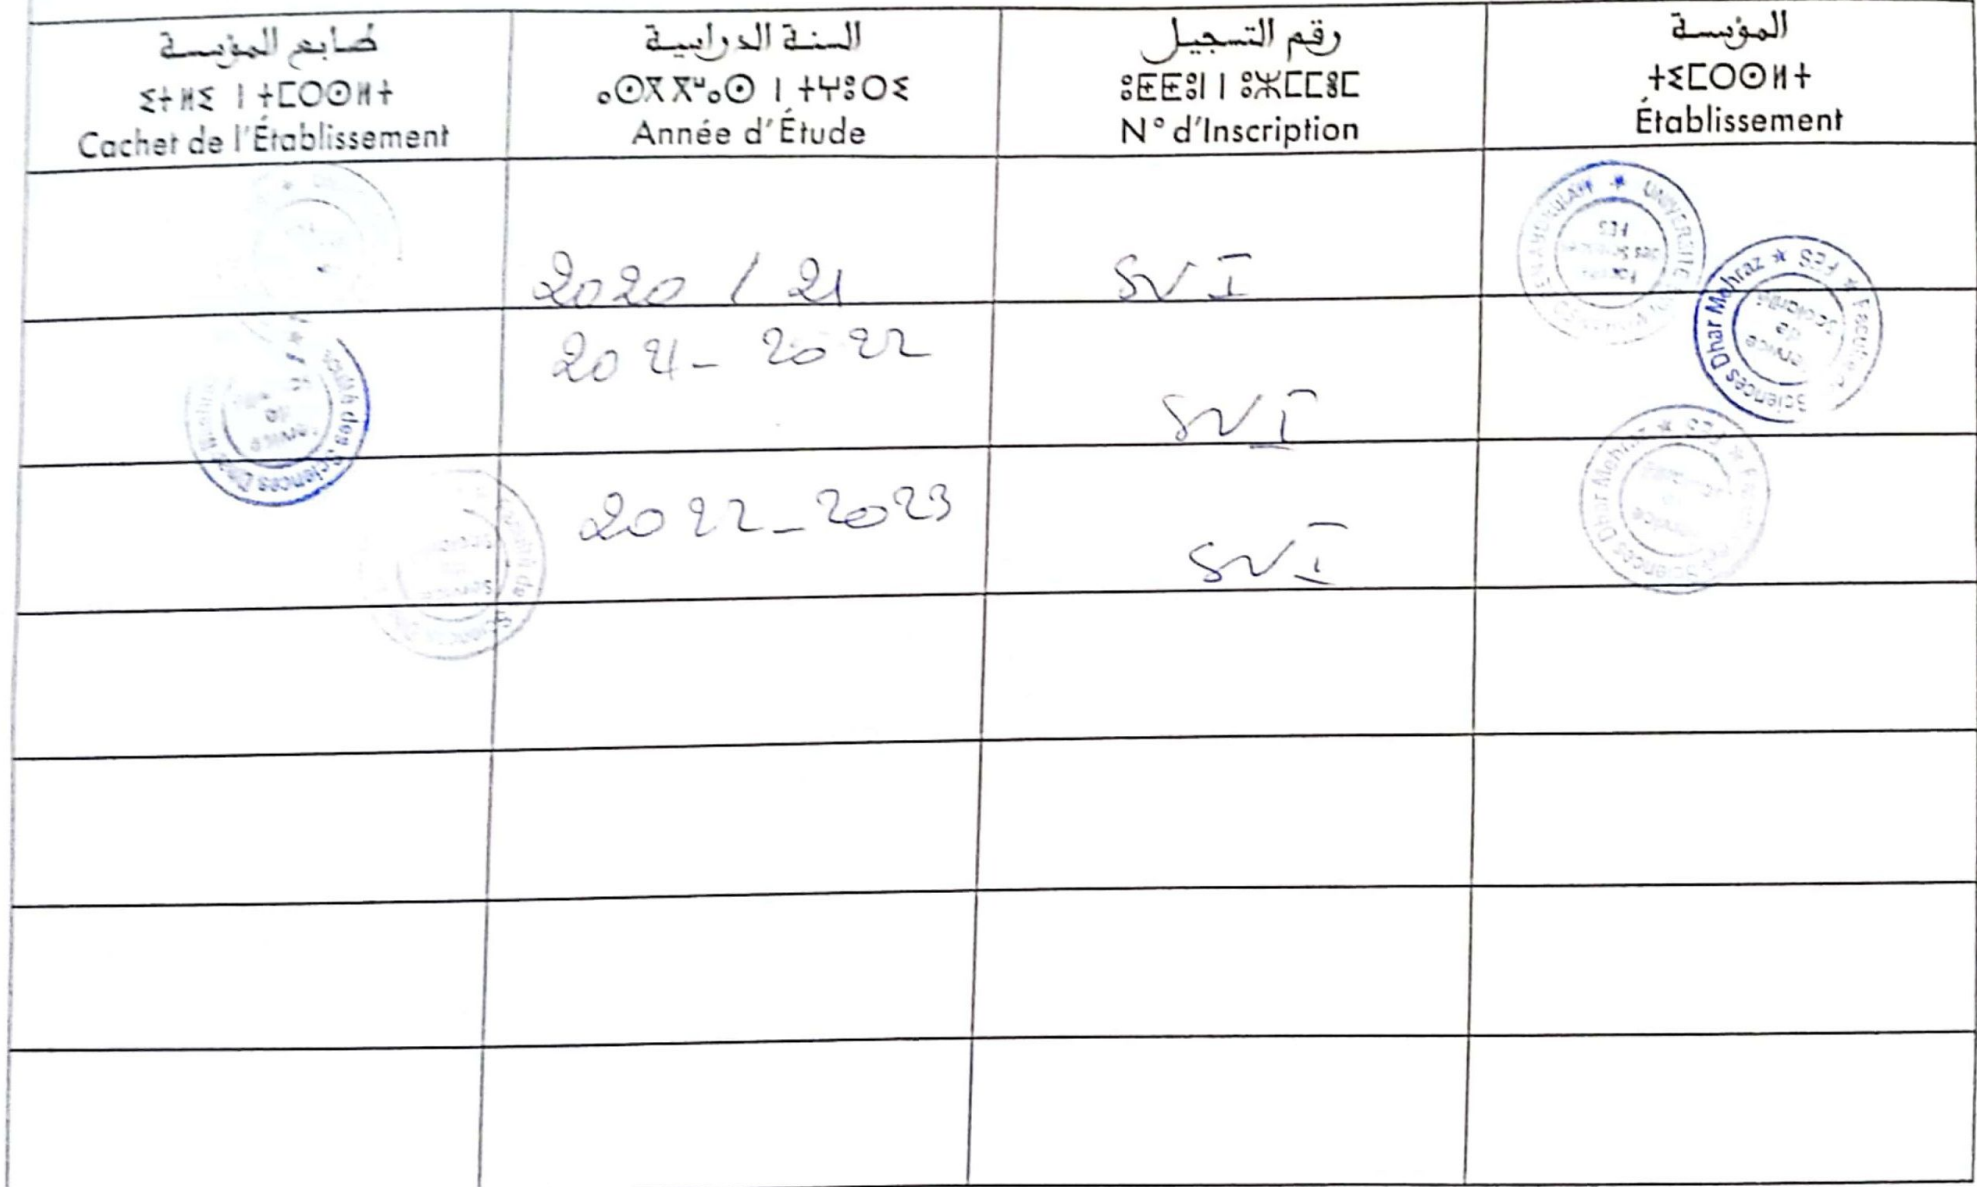 طابع المؤسسة
ⵉⵜⵍⵉ ⵏ ⵜⵎⵔⵙⵍⵜ
Cachet de l'Établissement
السنة الدراسية
ⴰⵙⴳⴳⵯⴰⵙ ⵏ ⵜⵖⵓⵔⵉ
Année d'Étude
رقم التسجيل
ⵓⵟⵟⵓⵏ ⵏ ⵓⵣⵎⵎⴻⵎ
N° d'Inscription
المؤسسة
ⵜⵉⵎⵔⵙⵍⵜ
Établissement
2020 / 21
SVI
UNIVERSITE
FES
2021 - 2022
SVI
Sciences Dhar Mehraz * FES * Faculté
Service
de
2022 - 2023
SVI
Sciences Dhar Mehraz * FES
Service